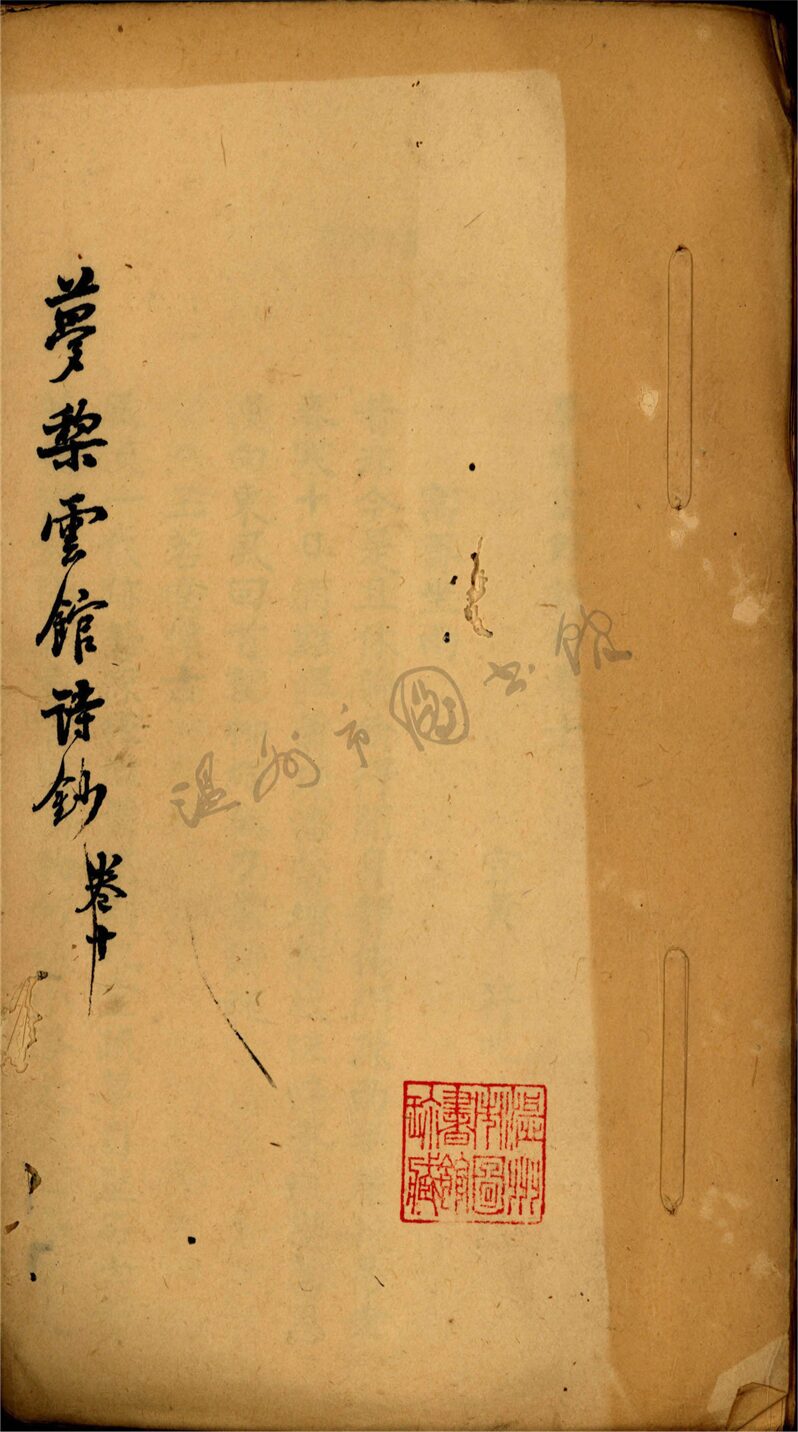 温州市圖書館珍藏
温州市图书馆
夢梨雲館詩鈔
卷十